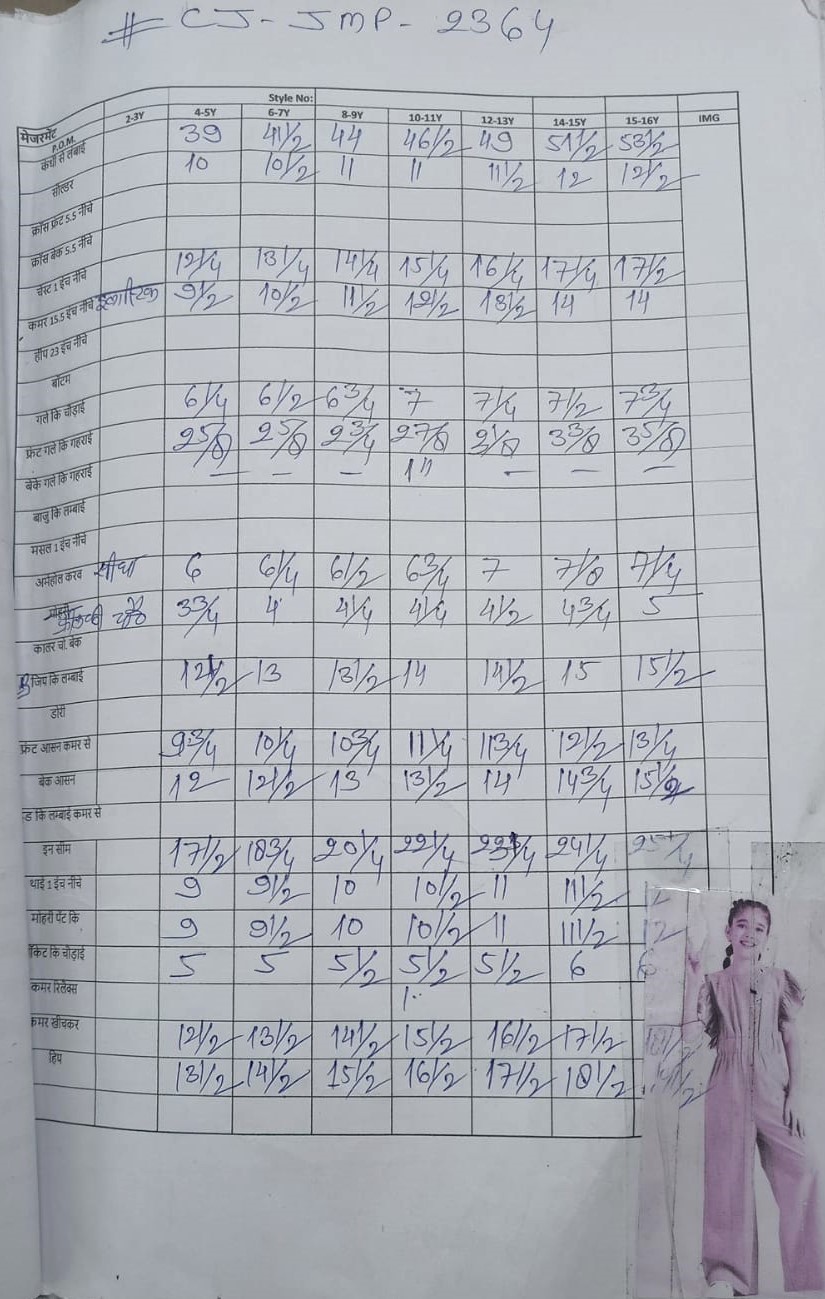 # CJ - JMP - 2364
Style No:
मेजरमेंट P.O.M. 2-3Y 4-5Y 6-7Y 8-9Y 10-11Y 12-13Y 14-15Y 15-16Y IMG
कंधो से लंबाई 39 41 1/2 44 46 1/2 49 51 1/2 53 1/2
सोल्डर 10 10 1/2 11 11 11 1/2 12 12 1/2
क्रॉस फ्रंट 5.5 नीचे
क्रॉस बेक 5.5 नीचे
चेस्ट 1 इंच नीचे 12 1/4 13 1/4 14 1/4 15 1/4 16 1/4 17 1/4 17 1/2
कमर 15.5 इंच नीचे 9 1/2 10 1/2 11 1/2 12 1/2 13 1/2 14 14
हीप 23 इंच नीचे
बॉटम
गले कि चौड़ाई 6 1/4 6 1/2 6 3/4 7 7 1/4 7 1/2 7 3/4
फ्रंट गले कि गहराई 2 5/8 2 5/8 2 3/4 2 7/8 3 3/8 3 5/8
बेके गले कि गहराई — — — 1" — — —
बाजु कि लम्बाई
मसल 1 इंच नीचे
अर्महोल करव सीधा 6 6 1/4 6 1/2 6 3/4 7 7 1/8 7 1/4
3 3/4 4 4 1/4 4 1/4 4 1/2 4 3/4 5
कालर चौ. बेक
जिप कि लम्बाई 12 1/2 13 13 1/2 14 14 1/2 15 15 1/2
डोरी
फ्रंट आसन कमर से 9 3/4 10 1/4 10 3/4 11 1/4 11 3/4 12 1/2 13 1/4
बेक आसन 12 12 1/2 13 13 1/2 14 14 3/4 15 1/2
ड कि लम्बाई कमर से
इन सीम 17 1/2 18 3/4 20 1/4 22 1/4 24 1/4 25 1/4
थाई 1 इंच नीचे 9 9 1/2 10 10 1/2 11 11 1/2
मोहरी पेंट कि 9 9 1/2 10 10 1/2 11 11 1/2 12
किट कि चौड़ाई 5 5 5 1/2 5 1/2 5 1/2 6 6
कमर रिलैक्स
कमर खीचकर 12 1/2 13 1/2 14 1/2 15 1/2 16 1/2 17 1/2 18 1/2
हिप 13 1/2 14 1/2 15 1/2 16 1/2 17 1/2 18 1/2